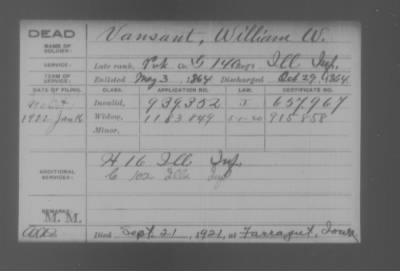 DEAD Vansant, William W.
NAME OF SOLDIER:
SERVICE: Late rank, Pvt. Co. G, 140 Regt. Ill. Inf.
TERM OF SERVICE: Enlisted May 3, 1864 Discharged Oct 29, 1864
DATE OF FILING. CLASS. APPLICATION NO. LAW. CERTIFICATE NO.
Invalid, 939352 657967
1922 Jan 16 Widow, 1183049 5-1-20 915858
Minor,
ADDITIONAL SERVICES: H 16 Ill Inf
C 102 Ill Inf
REMARKS:
M. M.
Died Sept. 21, 1921, at Farragut, Iowa